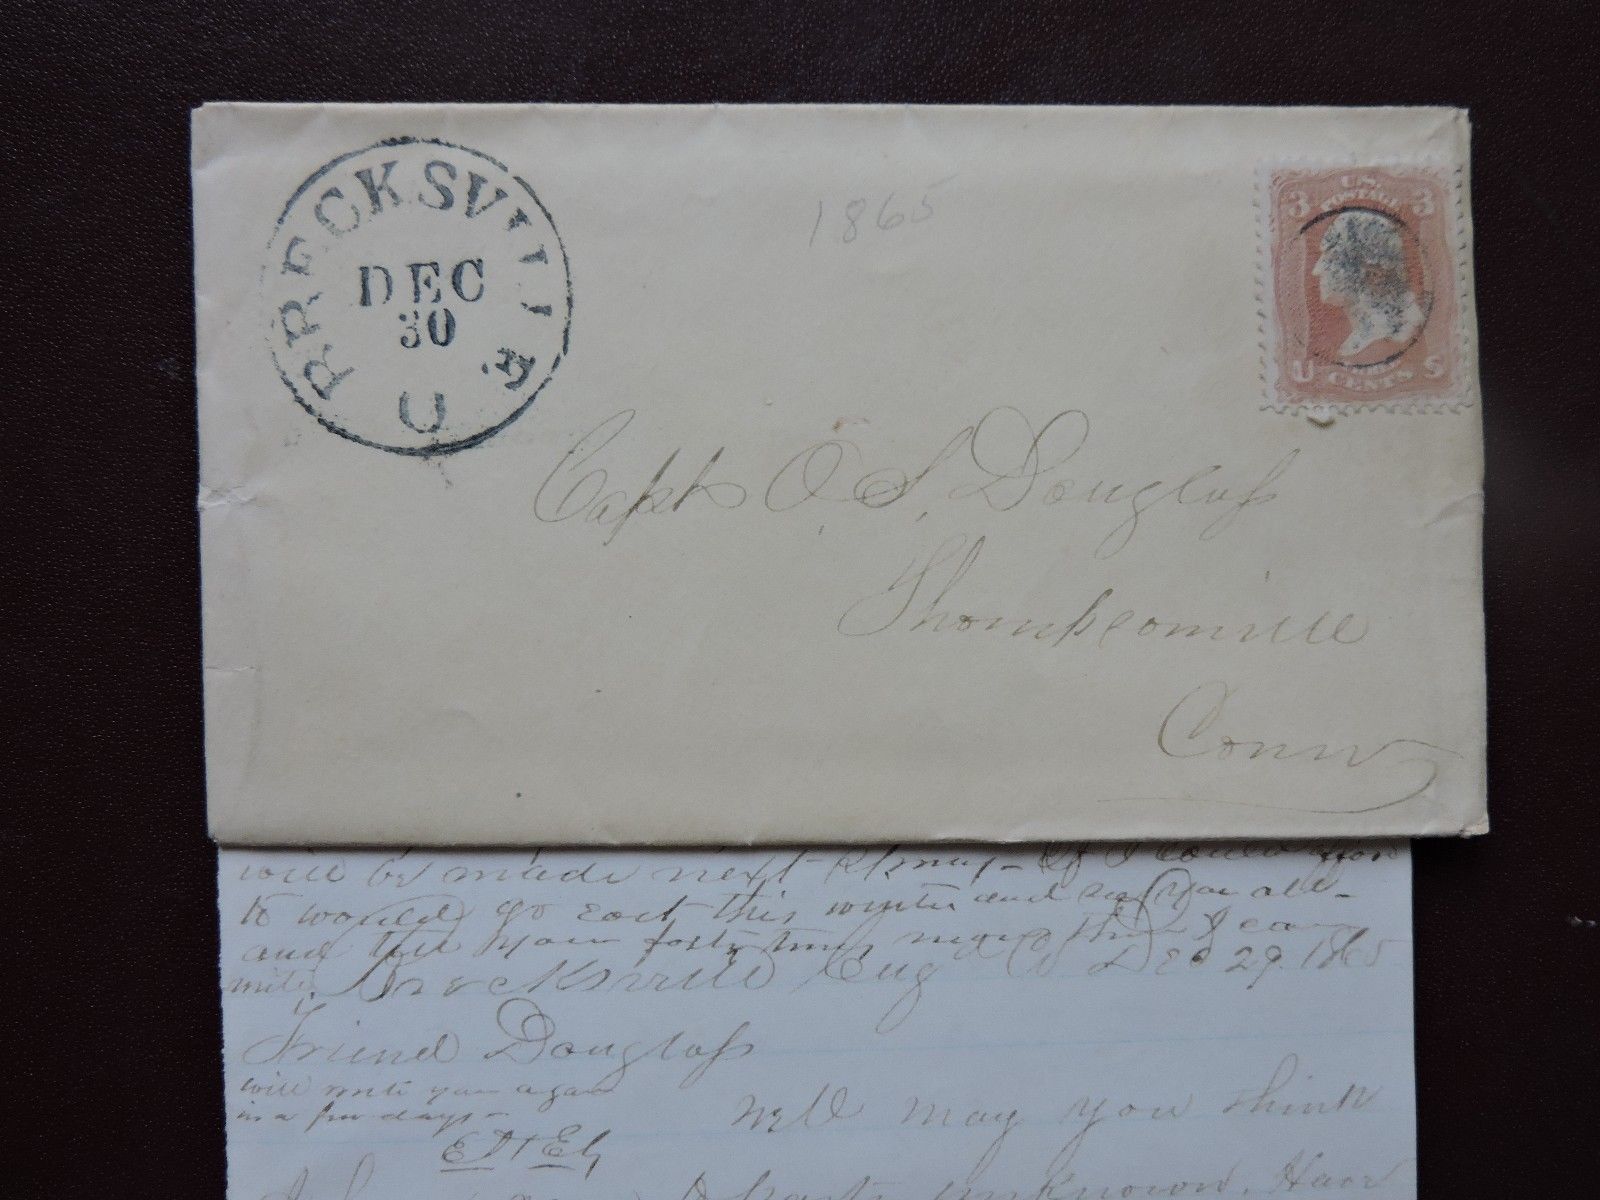 BRECKSVILLE
DEC
30
O
1865
U.S.
POSTAGE
3 3
U S
CENTS
Capt O. S. Douglass
Thompsonville
Conn
will be made next If I could afford
to would go East this winter and see you all-
and tell you forty times more than I can
write Brecksville O Dec 29. 1865
Friend Douglass
will write you again
in a few days-
Well may you think
parts unknown. Have